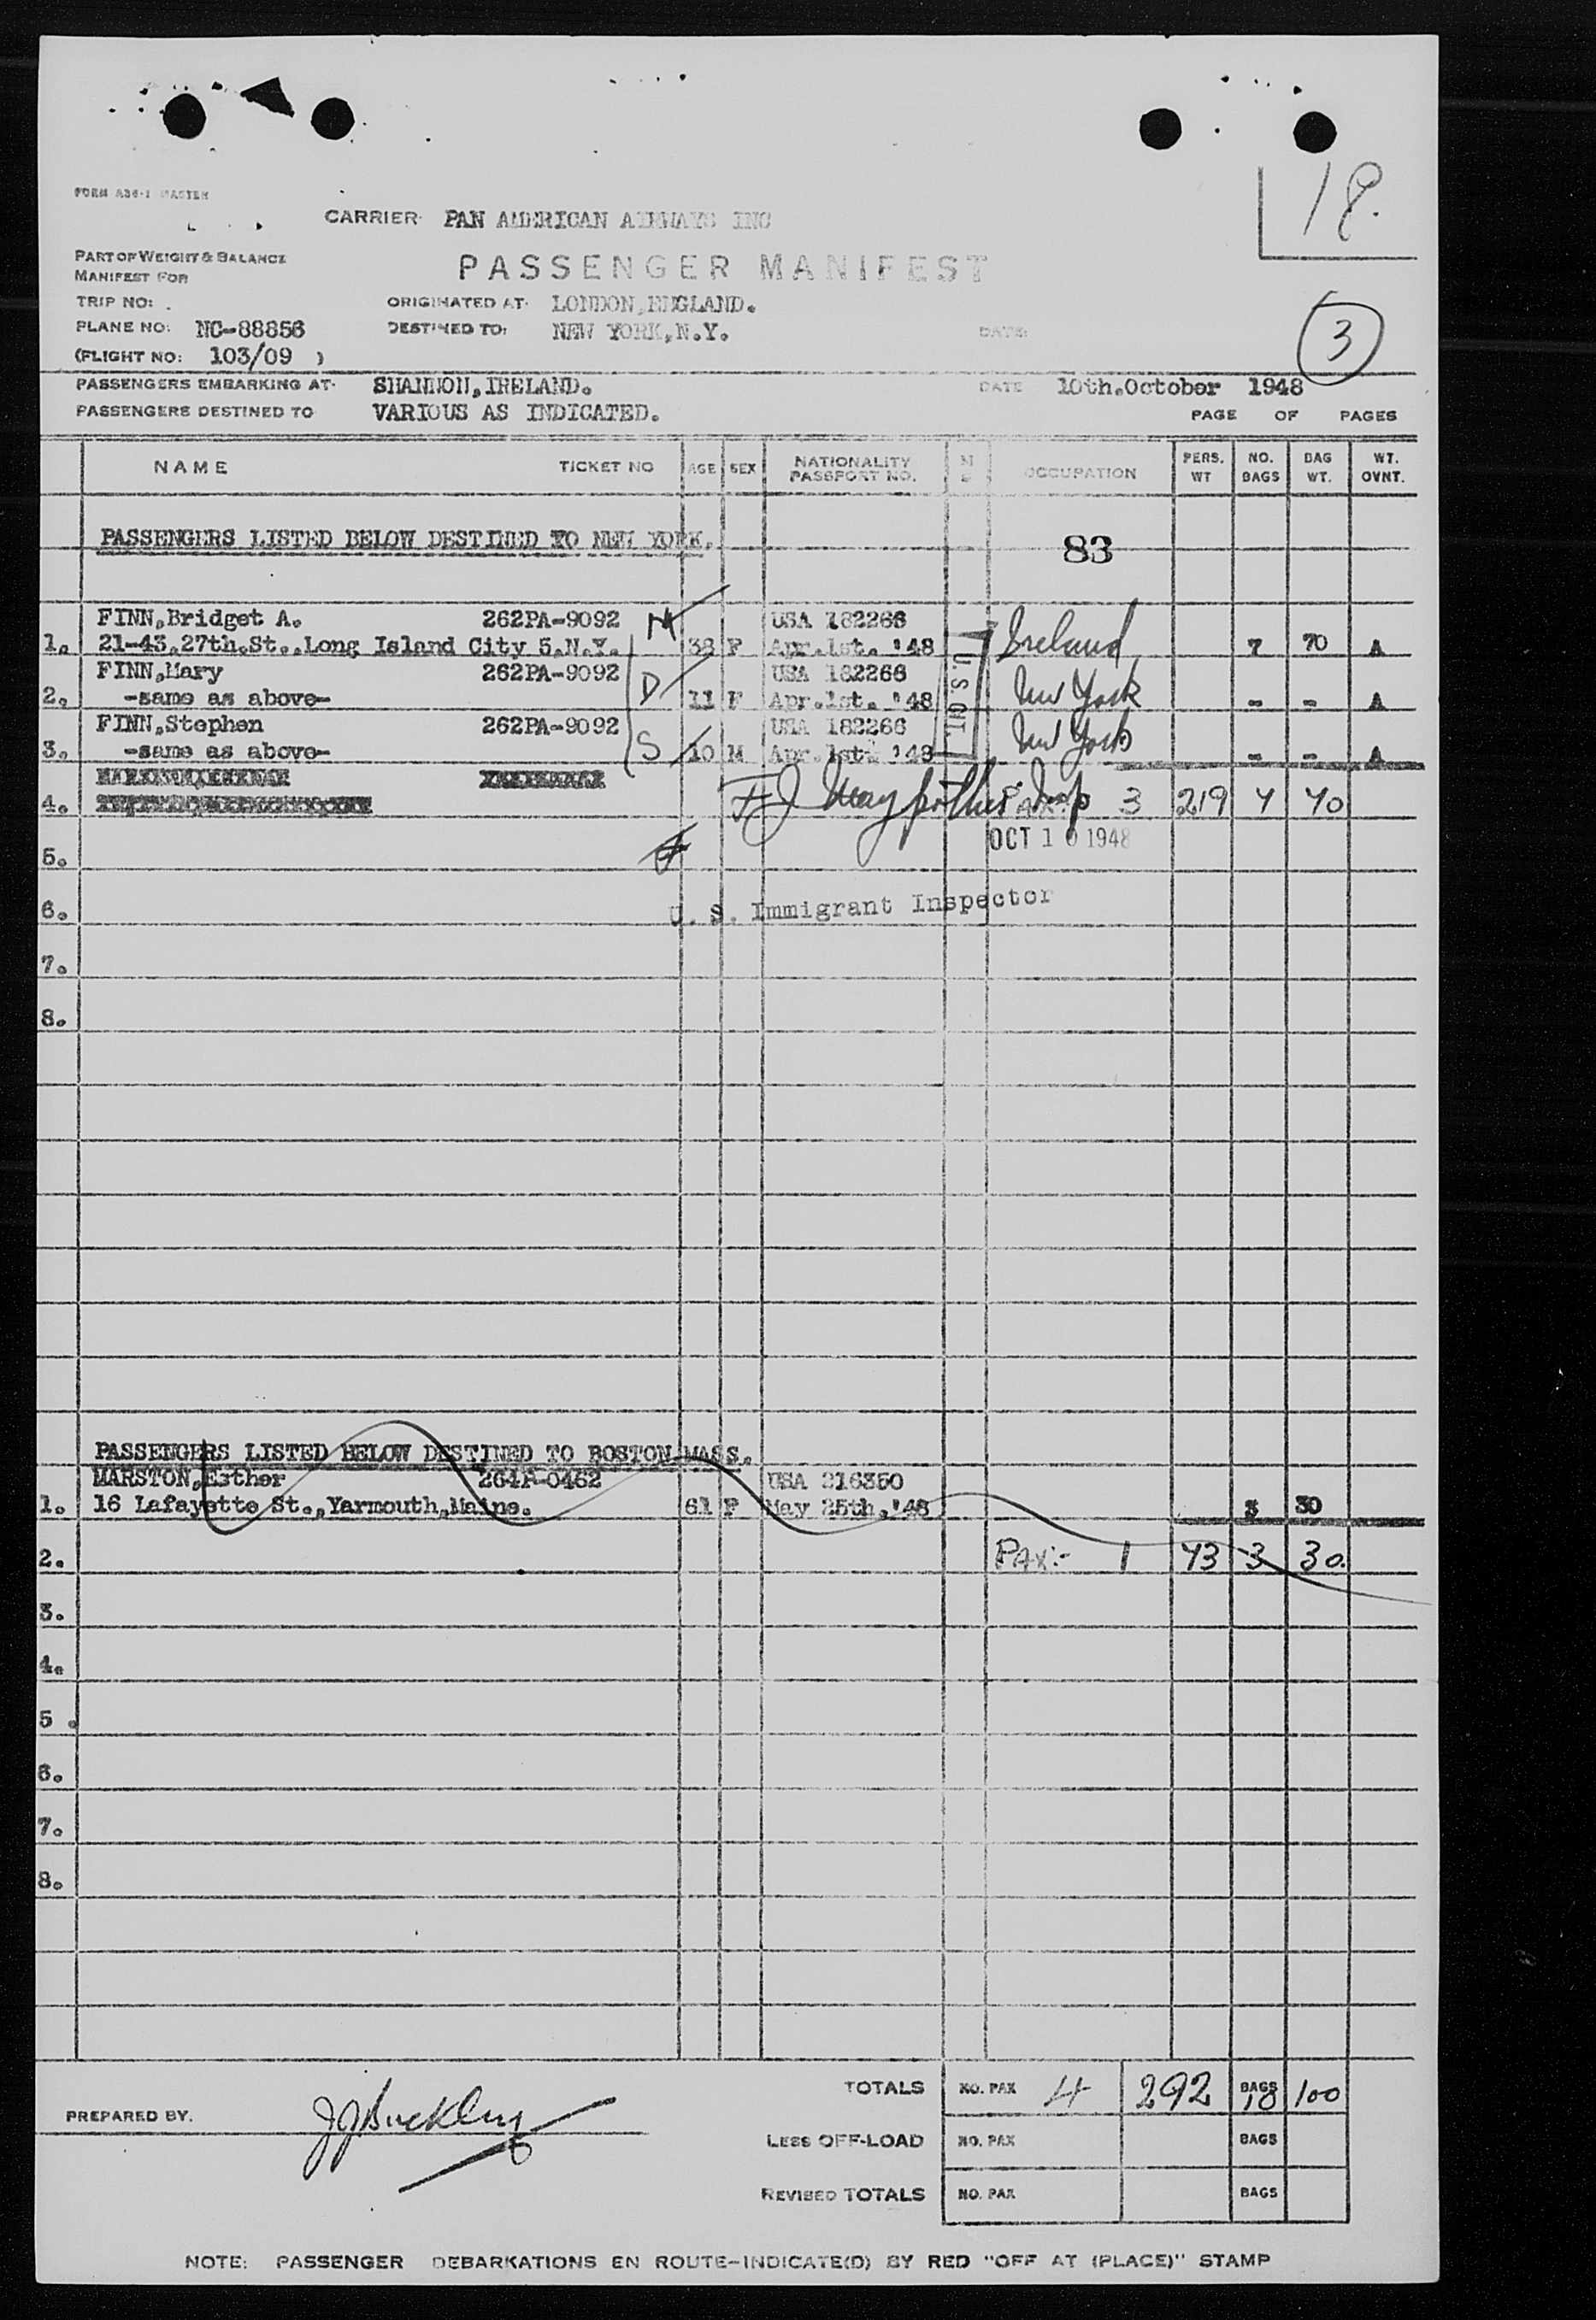 18.
FORM A36-1 MASTER
CARRIER PAN AMERICAN AIRWAYS INC
PART OF WEIGHT & BALANCE
MANIFEST FOR
PASSENGER MANIFEST
TRIP NO: .
ORIGINATED AT. LONDON,ENGLAND.
PLANE NO: NC-88856
DESTINED TO: NEW YORK,N.Y.
DATE:
3
(FLIGHT NO: 103/09 )
PASSENGERS EMBARKING AT. SHANNON,IRELAND.
DATE 10th.October 1948
PASSENGERS DESTINED TO VARIOUS AS INDICATED.
PAGE OF PAGES
NAME TICKET NO AGE SEX NATIONALITY PASSPORT NO. OCCUPATION PERS. WT NO. BAGS BAG WT. WT. OVNT.
PASSENGERS LISTED BELOW DESTINED TO NEW YORK.
83
FINN,Bridget A. 262PA-9092 M USA 182266
1. 21-43.27th.St.,Long Island City 5.N.Y. 38 F Apr.1st. '48 Ireland 7 70 A
FINN,Mary 262PA-9092 D USA 182266
2. -same as above- 11 F Apr.1st. '48 New York - - A
FINN,Stephen 262PA-9092 S USA 182266
3. -same as above- 10 M Apr.1st. '48 New York - - A
U.S CIT.
4. 3 219 7 70
OCT 10 1948
5.
6. U. S. Immigrant Inspector
7.
8.
PASSENGERS LISTED BELOW DESTINED TO BOSTON MASS.
MARSTON,Esther 264A-0462 USA 216350
1. 16 Lafayette St.,Yarmouth,Maine. 61 F May 25th,'48 3 30
2. PAX:- 1 73 3 30.
3.
4.
5 .
6.
7.
8.
TOTALS NO. PAX 4 292 BAGS 10 100
PREPARED BY. JJBuckley
LESS OFF-LOAD NO. PAX BAGS
REVISED TOTALS NO. PAX BAGS
NOTE: PASSENGER DEBARKATIONS EN ROUTE-INDICATE(D) BY RED "OFF AT (PLACE)" STAMP